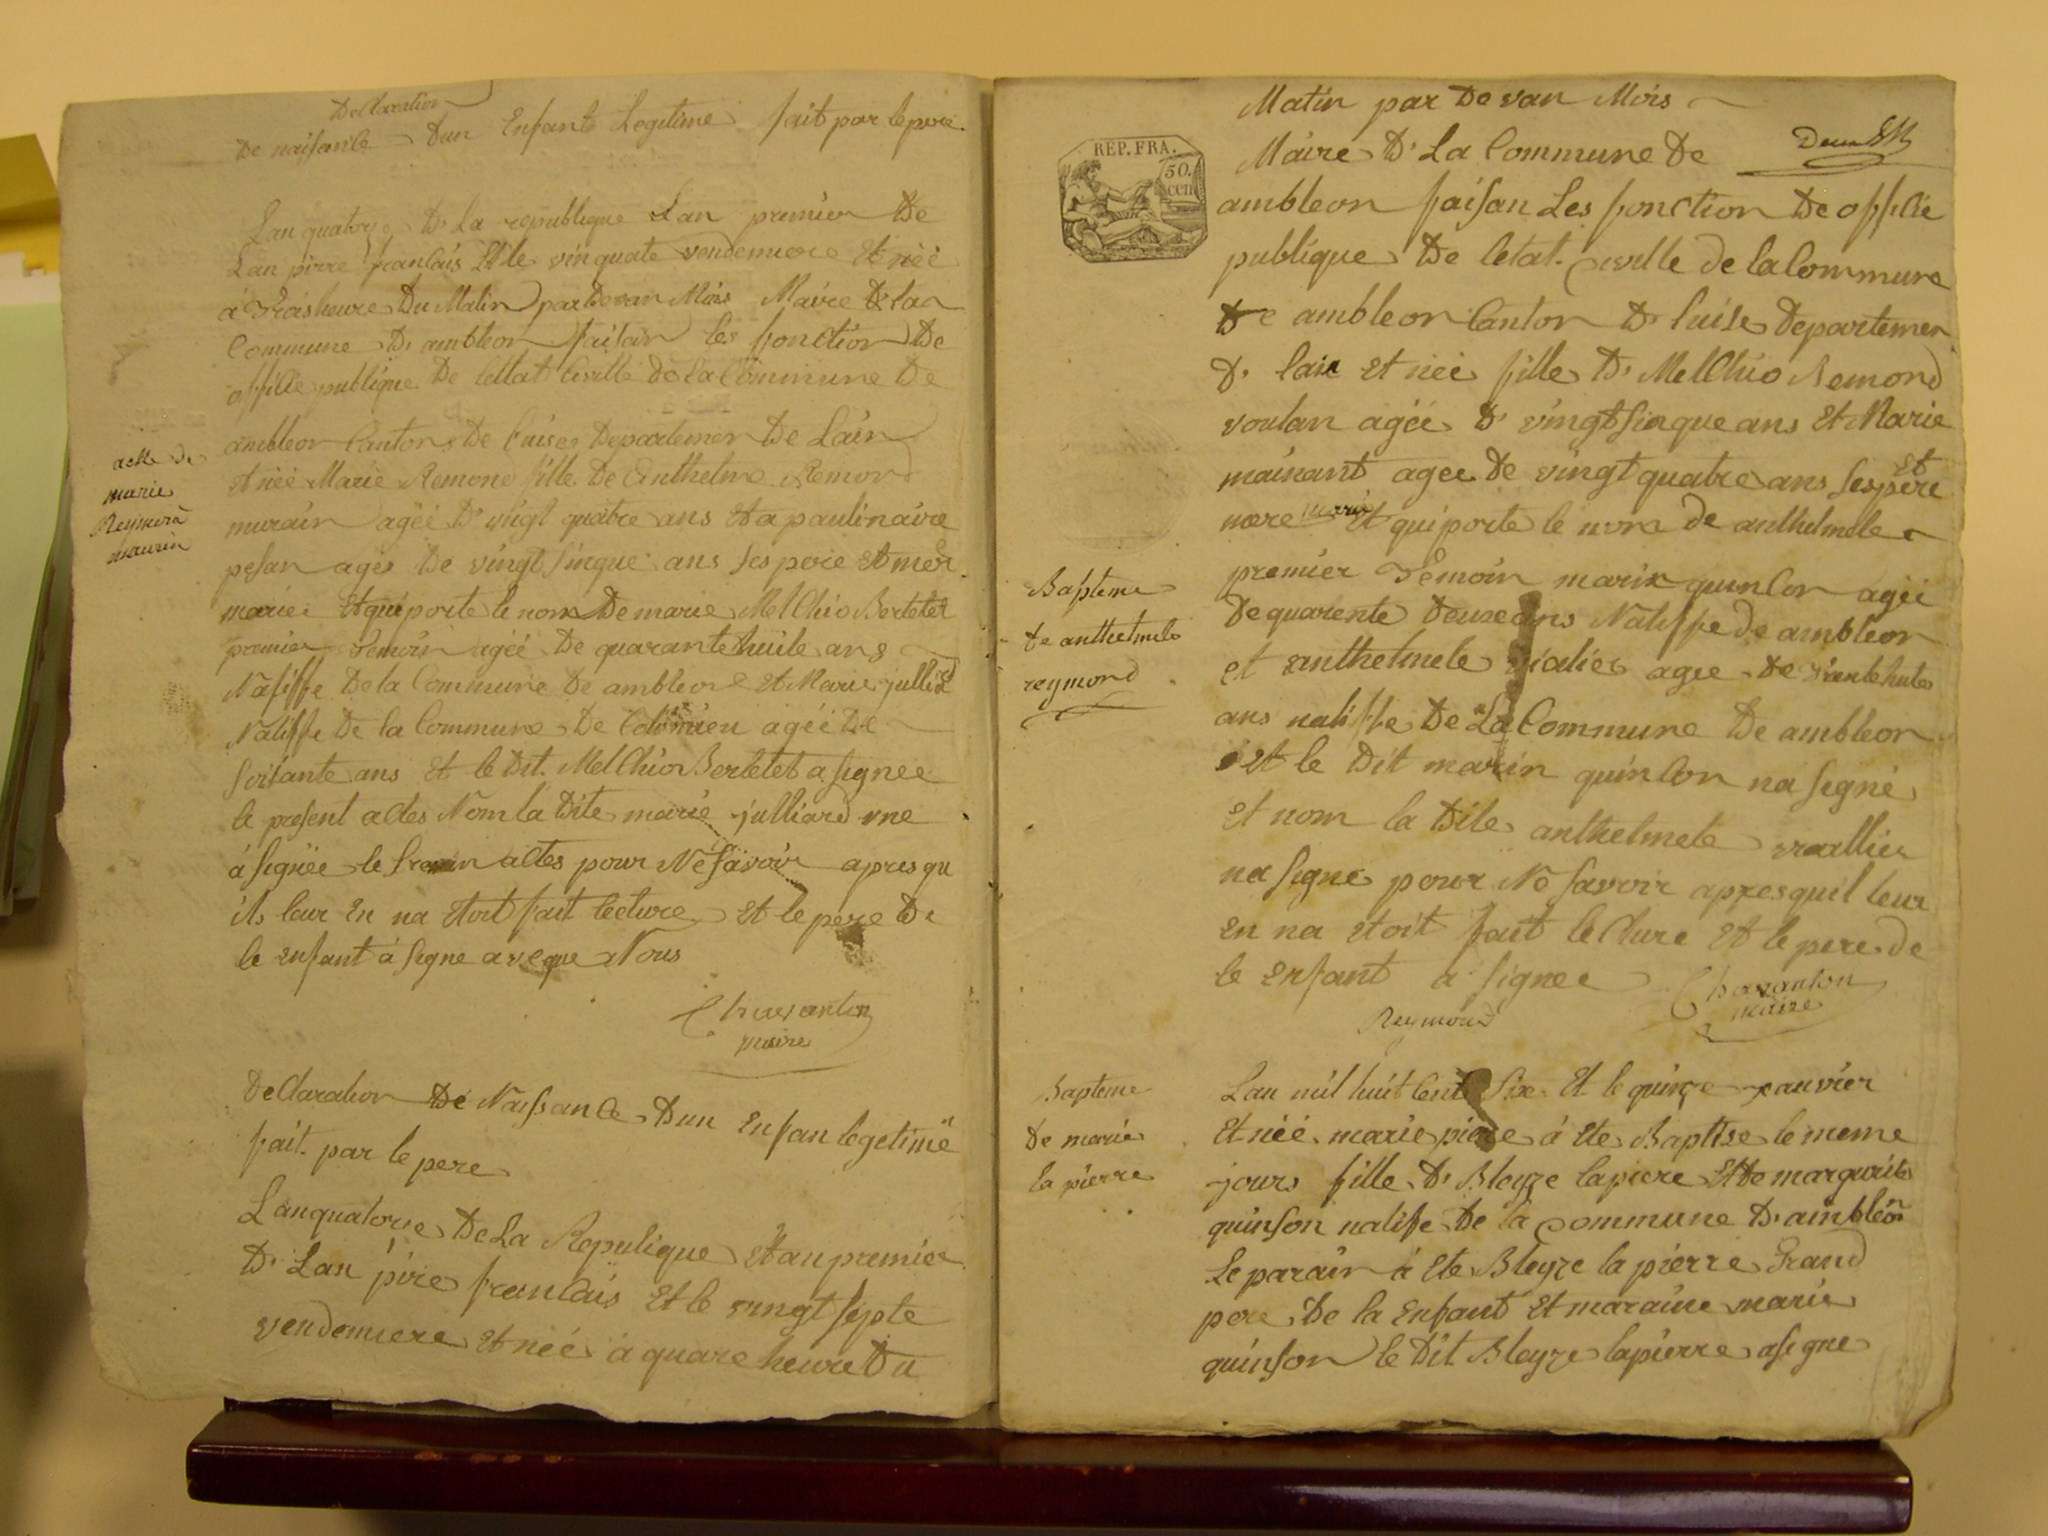 Declaration
De naisance Dun Enfante Legetime fait par le pere
Lan quatorze D. La republique Lan premier De
Lan pirre francais Et le vinquate vendemiere Et neé
a Trois heure Du Matin par Devan Mois Maire De la
Commune D. ambleon faisan les fonction De
offisie publique De letat Civille De la Commune De
ambleon Canton De Luise Departemen De Lain
et neé Marie Remond fille De Anthelme Remond
murain ageé D. vingt quatre ans Et a paulinaire
pesan ages De vingt sinque ans ses pere Et mer
acte de
marie
Reymond
maurin
marie Et qui porte le nom De marie Melchio Bertetet
premier Temoin ageé De quarante huite ans
Natiffe De la Commune De ambleon Et Marie julliard
Natiffe De la Commune De Colomieu ageé De
soisante ans Et le Dit Melchior Bertetet a signee
le present actes Nom la Dite marie julliard vne
á signëe le actes pour Né savoir apres qu
ils leur En na Etoit fait lecture Et le pere De
le enfant á signe aveque Nous
Chavanton
maire
Declaration De Naissance Dun Enfan legetime
fait par le pere
Lanquatorze De La Republique Et au premier
D. Lan pire francais Et le vingt septe
vendemiere Et neé a quare heure Du
Matin par De van Mois
REP. FRA.
50.
cen
Maire D. La Commune De
Deux
ambleon faisan Les fonction De offisie
publique De letat Civille de la Commune
De ambleon Canton D. Luise Departemen
D. lain Et neé fille D. Melchio Remond
voulan ageé D. vingt sinque ans Et Marie
mainant agee De vingt quatre ans ses pere Et
mere marie Et qui porte le nom de anthelmele
premier Temoin marin quinson ageé
De quarente Deuxe ans Natiffe de ambleon
Bapteme
de anthelmele
reymond
et anthelmele vialies agee De Trante huite
ans natiffe De La Commune De ambleon
et le Dit marin quinson na signé
Et nom la Dite anthelmele viallier
na signé pour Né savoir apres quil leur
En na Etoit fait lecture Et le pere de
le Enfant a signee
Reymond
Chavanton
maire
Bapteme
De marie
la pierre
Lan mil huit Cent Six Et le quinze janvier
Et neé marie piere á Ete Baptise le meme
jours fille D. Bleyze lapiere Et De marguite
quinson natife De la Commune D. ambleon
Le parain á Ete Bleyze la pierre Grand
pere De la Enfant Et maraine marie
quinson le Dit Bleyze lapierre asigne